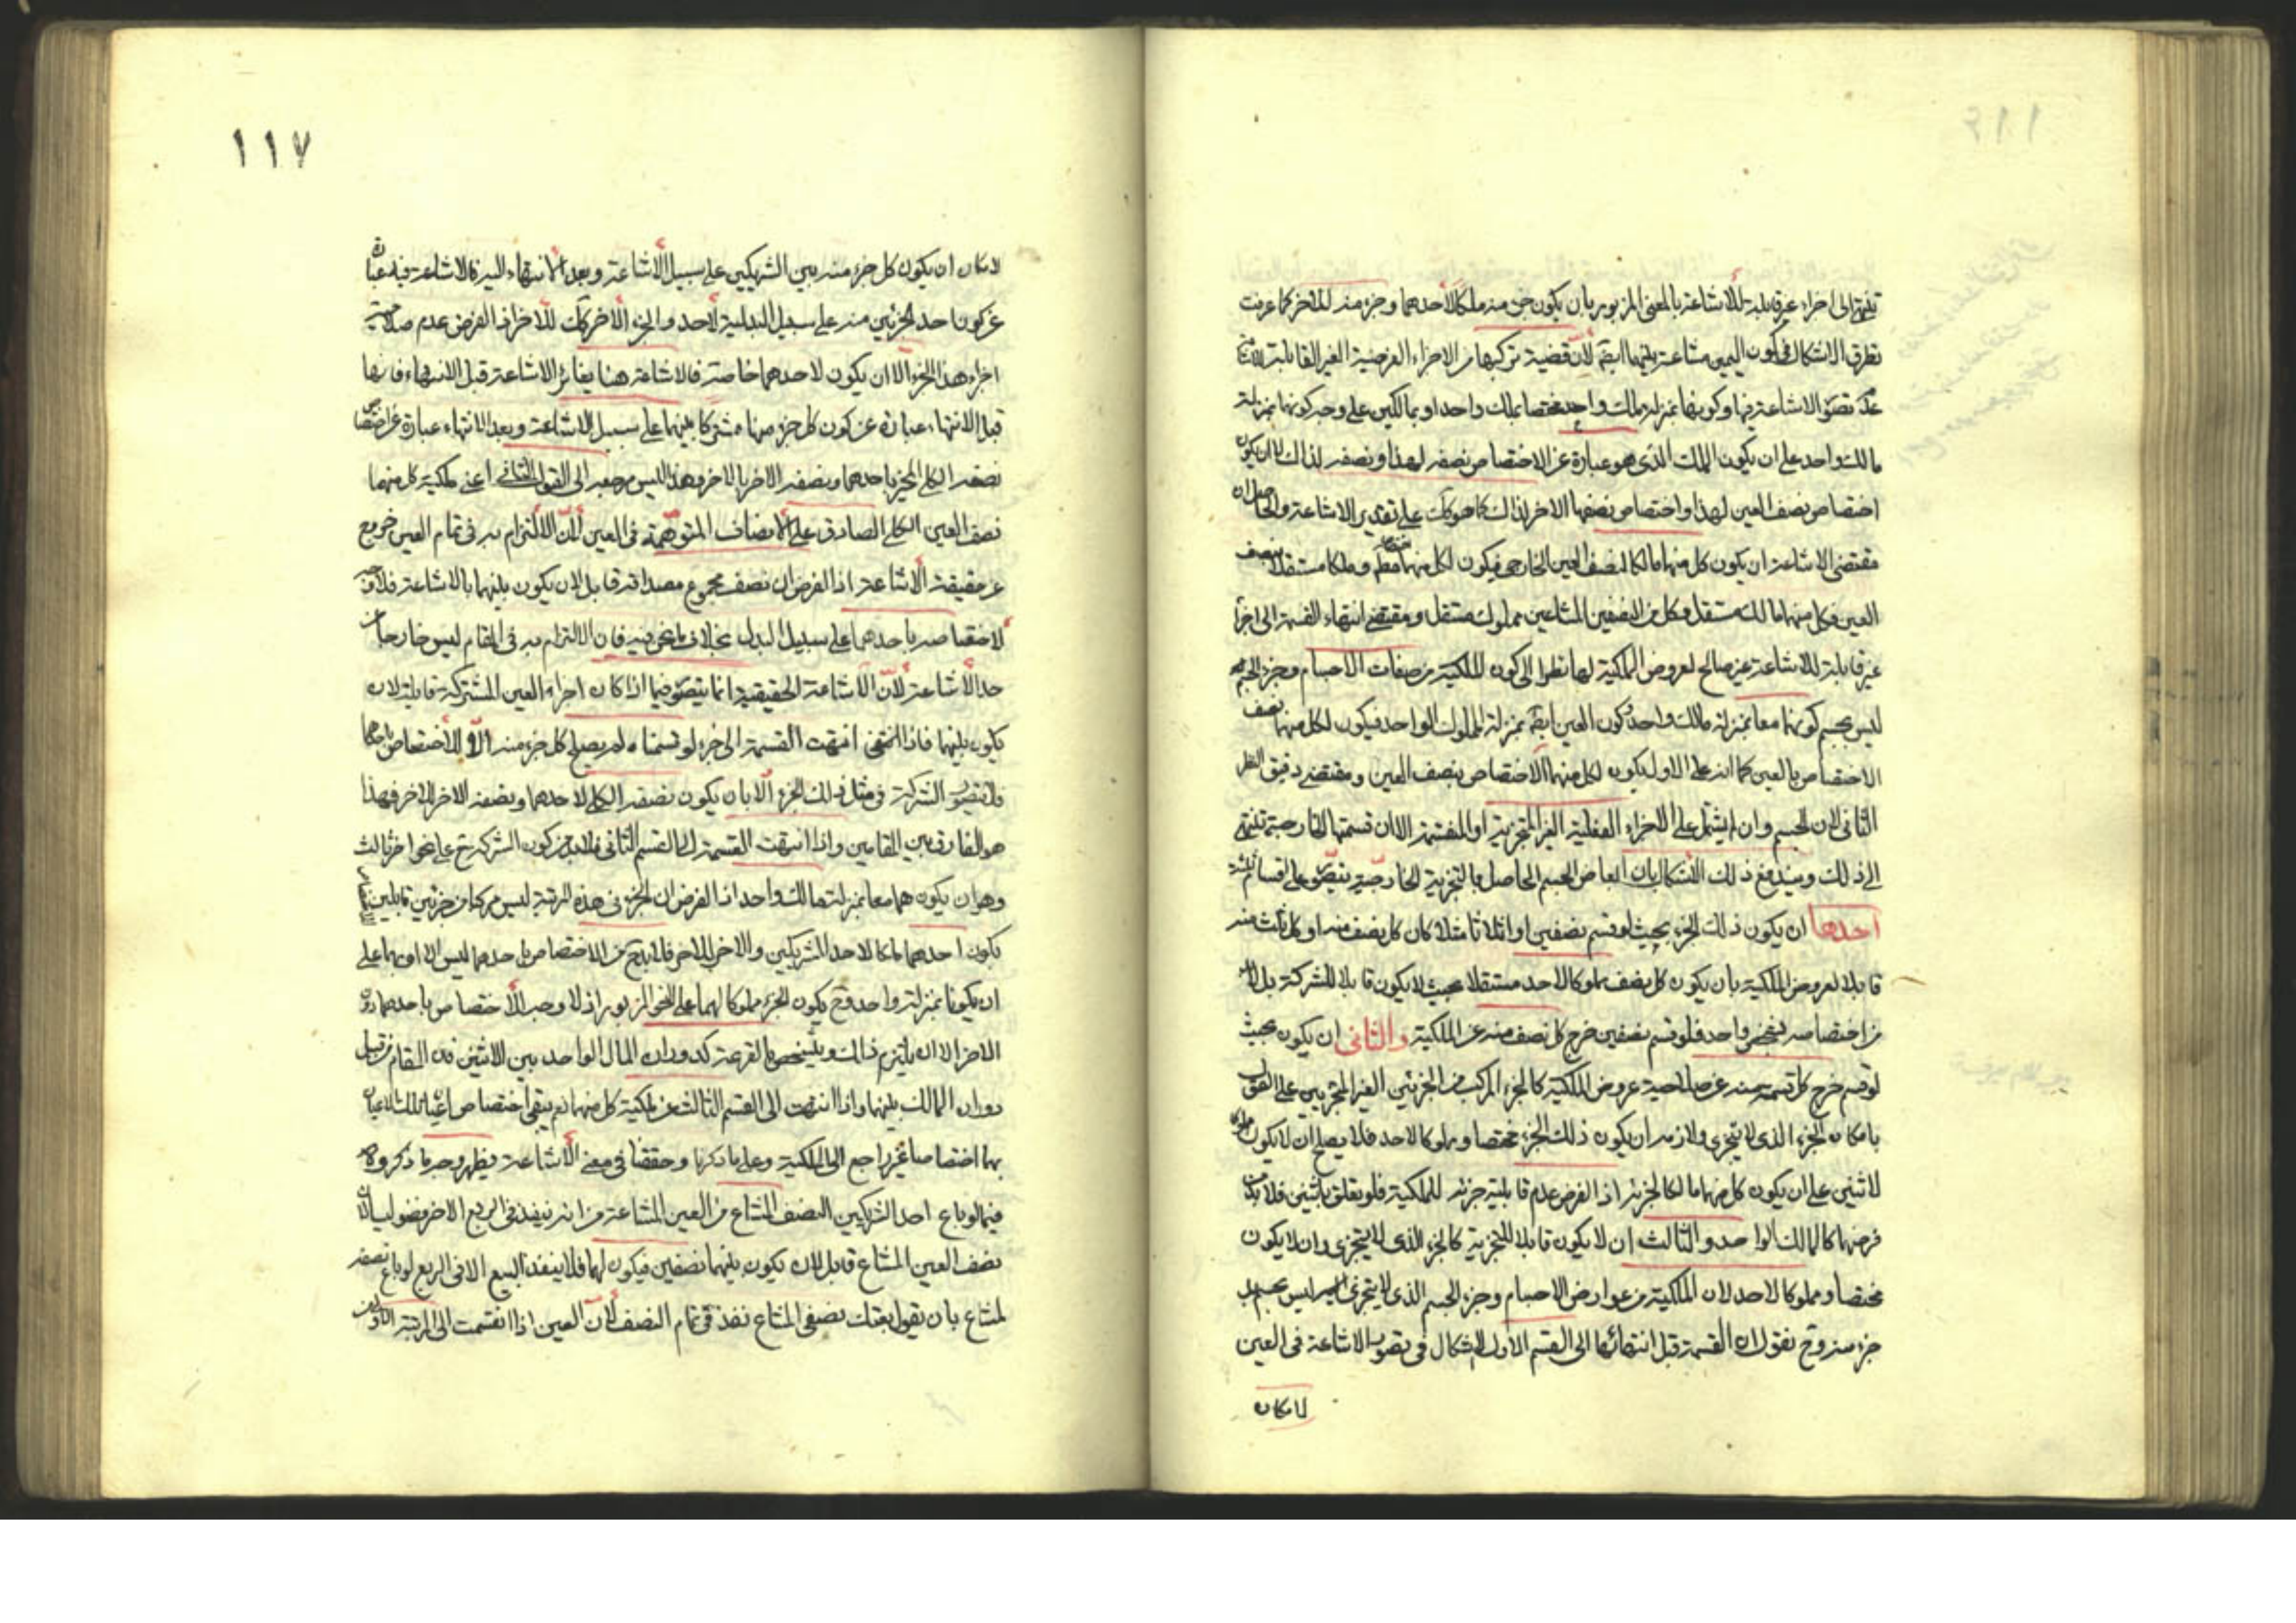 تنتهي الى اجزاء غير قابلة للاشاعة بالمعنى المزبور بان يكون جزء منه ملكا لاحدهما وجزء منه للاخر كما عرفت
تطرق الاشكال في كون المبيع مشاعة بينهما ايضا لان قضية تركبها من الاجزاء الفرضية الغير القابلة
عدم تصور الاشاعة فيها وكونها بمنزلة ملك واحد مختصا بملك واحد او بمالكين على وجه كونهما بمنزلة
مالك واحد على ان يكون الملك الذي هو عبارة عن الاختصاص نصفه لهذا ونصفه لذاك لا ان يكون
اختصاص نصف العين لهذا واختصاص نصفها الاخر لذاك كما هو كك على تقدير الاشاعة والحاصل ان
مقتضى الاشاعة ان يكون كل منهما مالكا لنصف العين الخارجي فيكون لكل منهما ملكا مستقلا بنصف
العين فكل منهما مالك مستقل وكل من النصفين المشاعين مملوك مستقل ومقتضى انتهاء القسمة الى اجزاء
غير قابلة للاشاعة غير صالح لعروض الملكية لها نظرا الى كون الملكية من صفات الاجسام وجزء الجسم
ليس بجسم كونهما معا بمنزلة مالك واحد وكون العين ايضا بمنزلة المملوك الواحد فيكون لكل منهما نصف
الاختصاص بالعين كما انه على الاول يكون لكل منهما الاختصاص بنصف العين ومقتضى دقيق النظر
الثاني لان الجسم وان لم يشتمل على الاجزاء الفعلية الغير المتجزية او المنقسمة الا ان قسمتها الخارجية تنتهي
الى ذلك ويندفع ذلك الاشكال بان ابعاض الجسم الحاصل بالتجزية الخارجية يتصور على اقسام ثلثة
احدها ان يكون ذلك الجزء بحيث لو قسم نصفين او اثلاثا مثلا كان كل نصف منه او كل ثلث منه
قابلا لعروض الملكية بان يكون كل نصف مملوكا لاحد مستقلا بحيث لا يكون قابلا للشركة بل لا بد
من اختصاصه بشخص واحد فلو قسم نصفين خرج كل نصف منه عن الملكية والثاني ان يكون بحيث
لو قسم خرج كل قسمة منه عن صلاحية عروض الملكية كالجزء المركب من الجزئين الغير المتجزيين على القول
بامكان الجزء الذي لا يتجزى ولازمه ان يكون ذلك الجزء مختصا ومملوكا لاحد فلا يصلح ان لا يكون مملوكا
لاثنين على ان يكون كل منهما مالكا لجزئه اذ الفرض عدم قابلية جزئه للملكية فلو تعلق باثنين فلا بد من
فرضهما كالمالك الواحد والثالث ان لا يكون قابلا للتجزية كالجزء الذي لا يتجزى وان لا يكون
مختصا ومملوكا لاحد لان الملكية من عوارض الاجسام وجزء الجسم الذي لا يتجزى ليس بجسم بل
جزء منه وح نقول ان القسمة قبل انتهائها الى القسم الاول لا اشكال في تصوير الاشاعة في العين
لامكان
١١٧
لامكان ان يكون كل جزء منه بين الشريكين على سبيل الاشاعة وبعد الانتهاء اليه فالاشاعة فيه عبارة
عن كون احد الجزئين منه على سبيل البدلية لاحد والجزء الاخر كك للاخر اذ الفرض عدم صلاحية
اجزاء هذا الجزء الا ان يكون لاحدهما خاصة فالاشاعة هنا يغاير الاشاعة قبل الانتهاء فانها
قبل الانتهاء عبارة عن كون كل جزء منها مشتركا بينهما على سبيل الاشاعة وبعد الانتهاء عبارة عن اختصاص
نصفه الكلي المخير باحدهما ونصفه الاخر بالاخر وهذا ليس مرجعه الى القول الثاني اعني ملكية كل منهما
نصف العين الكلي الصادق على الانصاف المتوهمة في العين لان الالتزام به في تمام العين خروج
عن حقيقة الاشاعة اذ الفرض ان نصف مجموع مصداقه قابل لان يكون بينهما بالاشاعة فلا وجه
لاختصاصه باحدهما على سبيل البدل بخلاف ما نحن فيه فان الالتزام به في المقام ليس خارجا عن
حد الاشاعة لان الاشاعة الحقيقية انما يتصور فيما اذا كان اجزاء العين المشتركة قابلة لان
يكون بينهما فاذا انتهت القسمة الى جزء لو قسمناه لم يصلح كل جزء منه الا للاختصاص باحدهما
فلا يتصور الشركة في مثل ذلك الجزء الا بان يكون نصفه الكلي لاحدهما ونصفه الاخر للاخر فهذا
هو الفارق بين المقامين واذا انتهت القسمة الى القسم الثاني فلا بد من كون الشركة ح على نحو اخر ثالث
وهو ان يكون هما معا بمنزلة مالك واحد اذ الفرض ان الجزء في هذه المرتبة ليس مركبا من جزئين قابلين لان
يكون احدهما ملكا لاحد الشريكين والاخر للاخر فلا بد ح من الاختصاص باحدهما ليس الا او بهما على
ان يكونا بمنزلة واحد وح يكون الجزء مملوكا لهما على النحو المزبور اذ لا وجه لاختصاص باحدهما دون
الاخر الا ان يلتزم ذلك ويشخص بالقرعة كدوران المال الواحد بين الاثنين فان المقام من قبيل
دوران المالك بينهما واذا انتهت الى القسم الثالث عن ملكية كل منهما نعم يبقى اختصاص
بهما اختصاصا غير راجع الى الملكية وعلى ما ذكرنا وحققنا في معنى الاشاعة يظهر وجه ما ذكروه
فيما لو باع احد الشريكين النصف المشاع من العين المشاعة من انه ينفذ في الربع الاخر فضولي لان
نصف العين المشاع قابل لان يكون بينهما نصفين فيكون لهما فلا ينفذ البيع الا في الربع لو باع نصفه
المشاع بان يقول بعتك نصفي المشاع نفذ في تمام النصف لان العين اذا انقسمت الى المرتبة